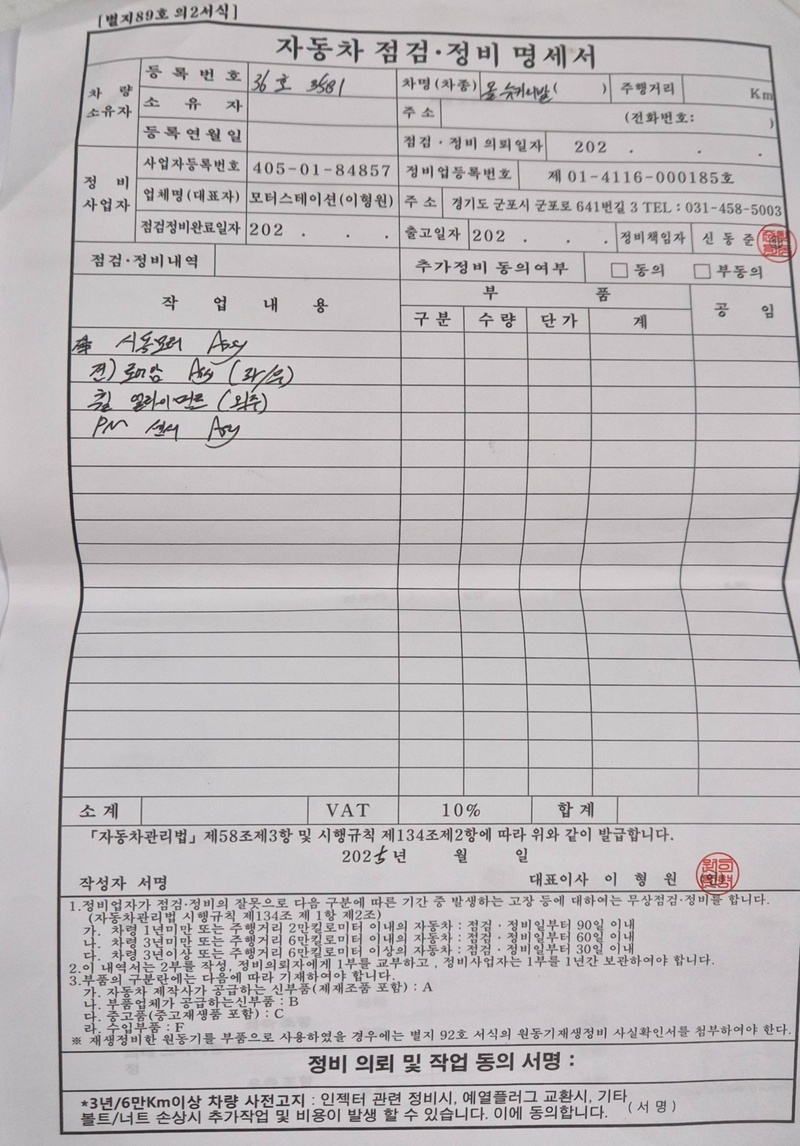 [별지89호 의2서식]
자동차 점검·정비 명세서
차 량 소유자
등록번호 36호 3581 차명(차종) 올 뉴카니발( ) 주행거리 Km
소 유 자 주 소 (전화번호: )
등록연월일 점검·정비 의뢰일자 202 . . .
정 비 사업자
사업자등록번호 405-01-84857 정비업등록번호 제 01-4116-000185호
업체명(대표자) 모터스테이션(이형원) 주 소 경기도 군포시 군포로 641번길 3 TEL : 031-458-5003
점검정비완료일자 202 . . . 출고일자 202 . . . 정비책임자 신 동 준
점검·정비내역 추가정비 동의여부 □ 동의 □ 부동의
작 업 내 용 부 품 공 임
구 분 수 량 단 가 계
시동모터 Assy
전) 로어암 Assy (좌/우)
휠 얼라이먼트 (외주)
PM 센서 Assy
소 계 VAT 10% 합 계
「자동차관리법」제58조제3항 및 시행규칙 제134조제2항에 따라 위와 같이 발급합니다.
2025년 월 일
작성자 서명 대표이사 이 형 원 (인)
1.정비업자가 점검·정비의 잘못으로 다음 구분에 따른 기간 중 발생하는 고장 등에 대하여는 무상점검·정비를 합니다.
(자동차관리법 시행규칙 제134조 제1항 제2조)
가. 차령 1년미만 또는 주행거리 2만킬로미터 이내의 자동차 : 점검·정비일부터 90일 이내
나. 차령 3년미만 또는 주행거리 6만킬로미터 이내의 자동차 : 점검·정비일부터 60일 이내
다. 차령 3년이상 또는 주행거리 6만킬로미터 이상의 자동차 : 점검·정비일부터 30일 이내
2.이 내역서는 2부를 작성, 정비의뢰자에게 1부를 교부하고, 정비사업자는 1부를 1년간 보관하여야 합니다.
3.부품의 구분란에는 다음에 따라 기재하여야 합니다.
가. 자동차 제작사가 공급하는 신부품(제재조품 포함) : A
나. 부품업체가 공급하는신부품 : B
다. 중고품(중고재생품 포함) : C
라. 수입부품 : F
※ 재생정비한 원동기를 부품으로 사용하였을 경우에는 별지 92호 서식의 원동기재생정비 사실확인서를 첨부하여야 한다.
정비 의뢰 및 작업 동의 서명 :
*3년/6만Km이상 차량 사전고지 : 인젝터 관련 정비시, 예열플러그 교환시, 기타
볼트/너트 손상시 추가작업 및 비용이 발생 할 수 있습니다. 이에 동의합니다. (서명)